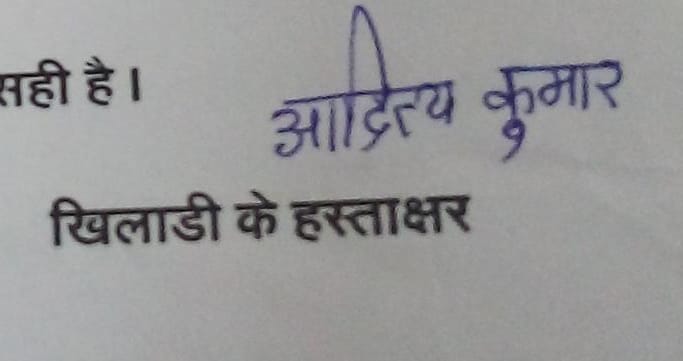 सही है।
आदित्य कुमार
खिलाडी के हस्ताक्षर